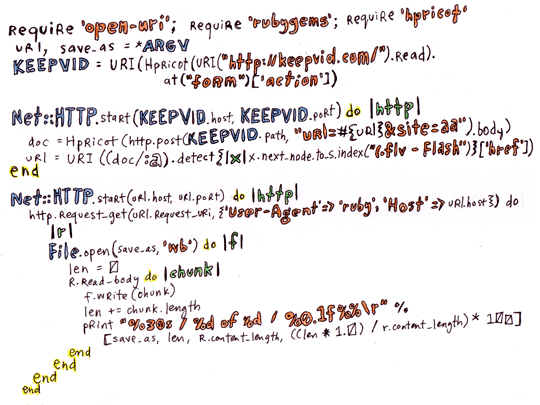 require 'open-uri'; require 'rubygems'; require 'hpricot'
url, save_as = *ARGV
KEEPVID = URI(Hpricot(URI("http://keepvid.com/").read).
at("form")['action'])
Net::HTTP.start(KEEPVID.host, KEEPVID.port) do |http|
doc = Hpricot(http.post(KEEPVID.path, "url=#{url}&site=aa").body)
url = URI ((doc/:a).detect{|x|x.next_node.to_s.index("(.flv - Flash")}['href'])
end
Net::HTTP.start(url.host, url.port) do |http|
http.request_get(url.request_uri, {'User-Agent'=> 'ruby', 'Host' => url.host}) do
|r|
File.open(save_as, 'wb') do |f|
len = 0
r.read_body do |chunk|
f.write(chunk)
len += chunk.length
print "%30s / %d of %d / %0.1f%%\r" %
[save_as, len, r.content_length, ((len * 1.0) / r.content_length) * 100]
end
end
end
end